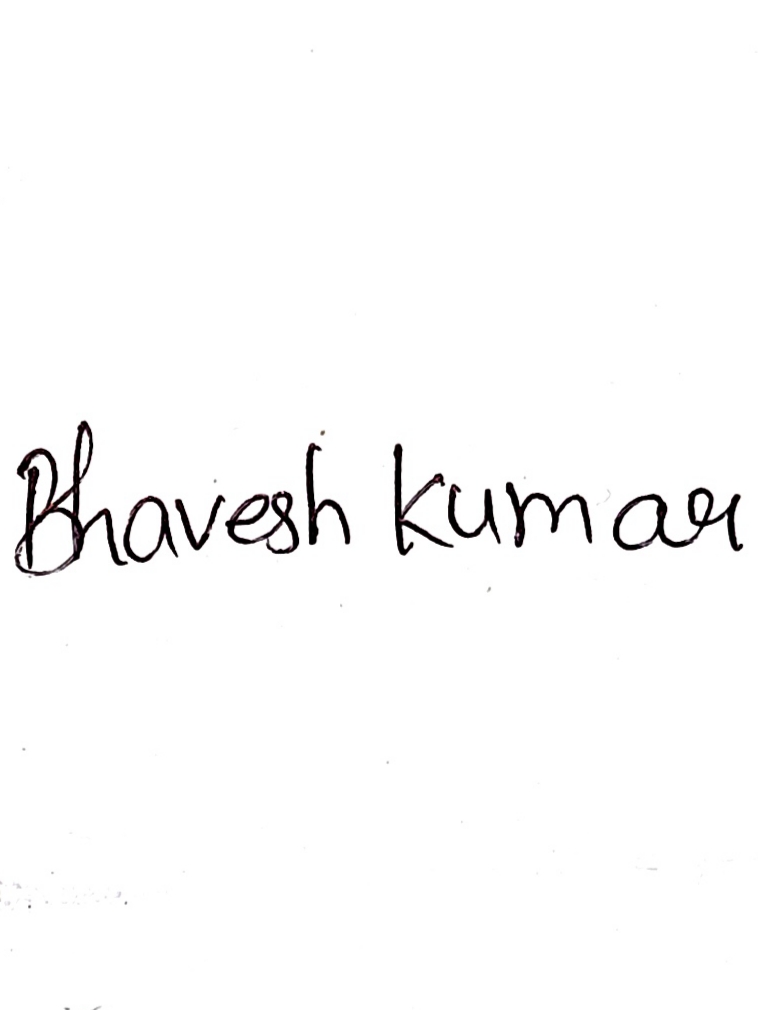 Bhavesh Kumar